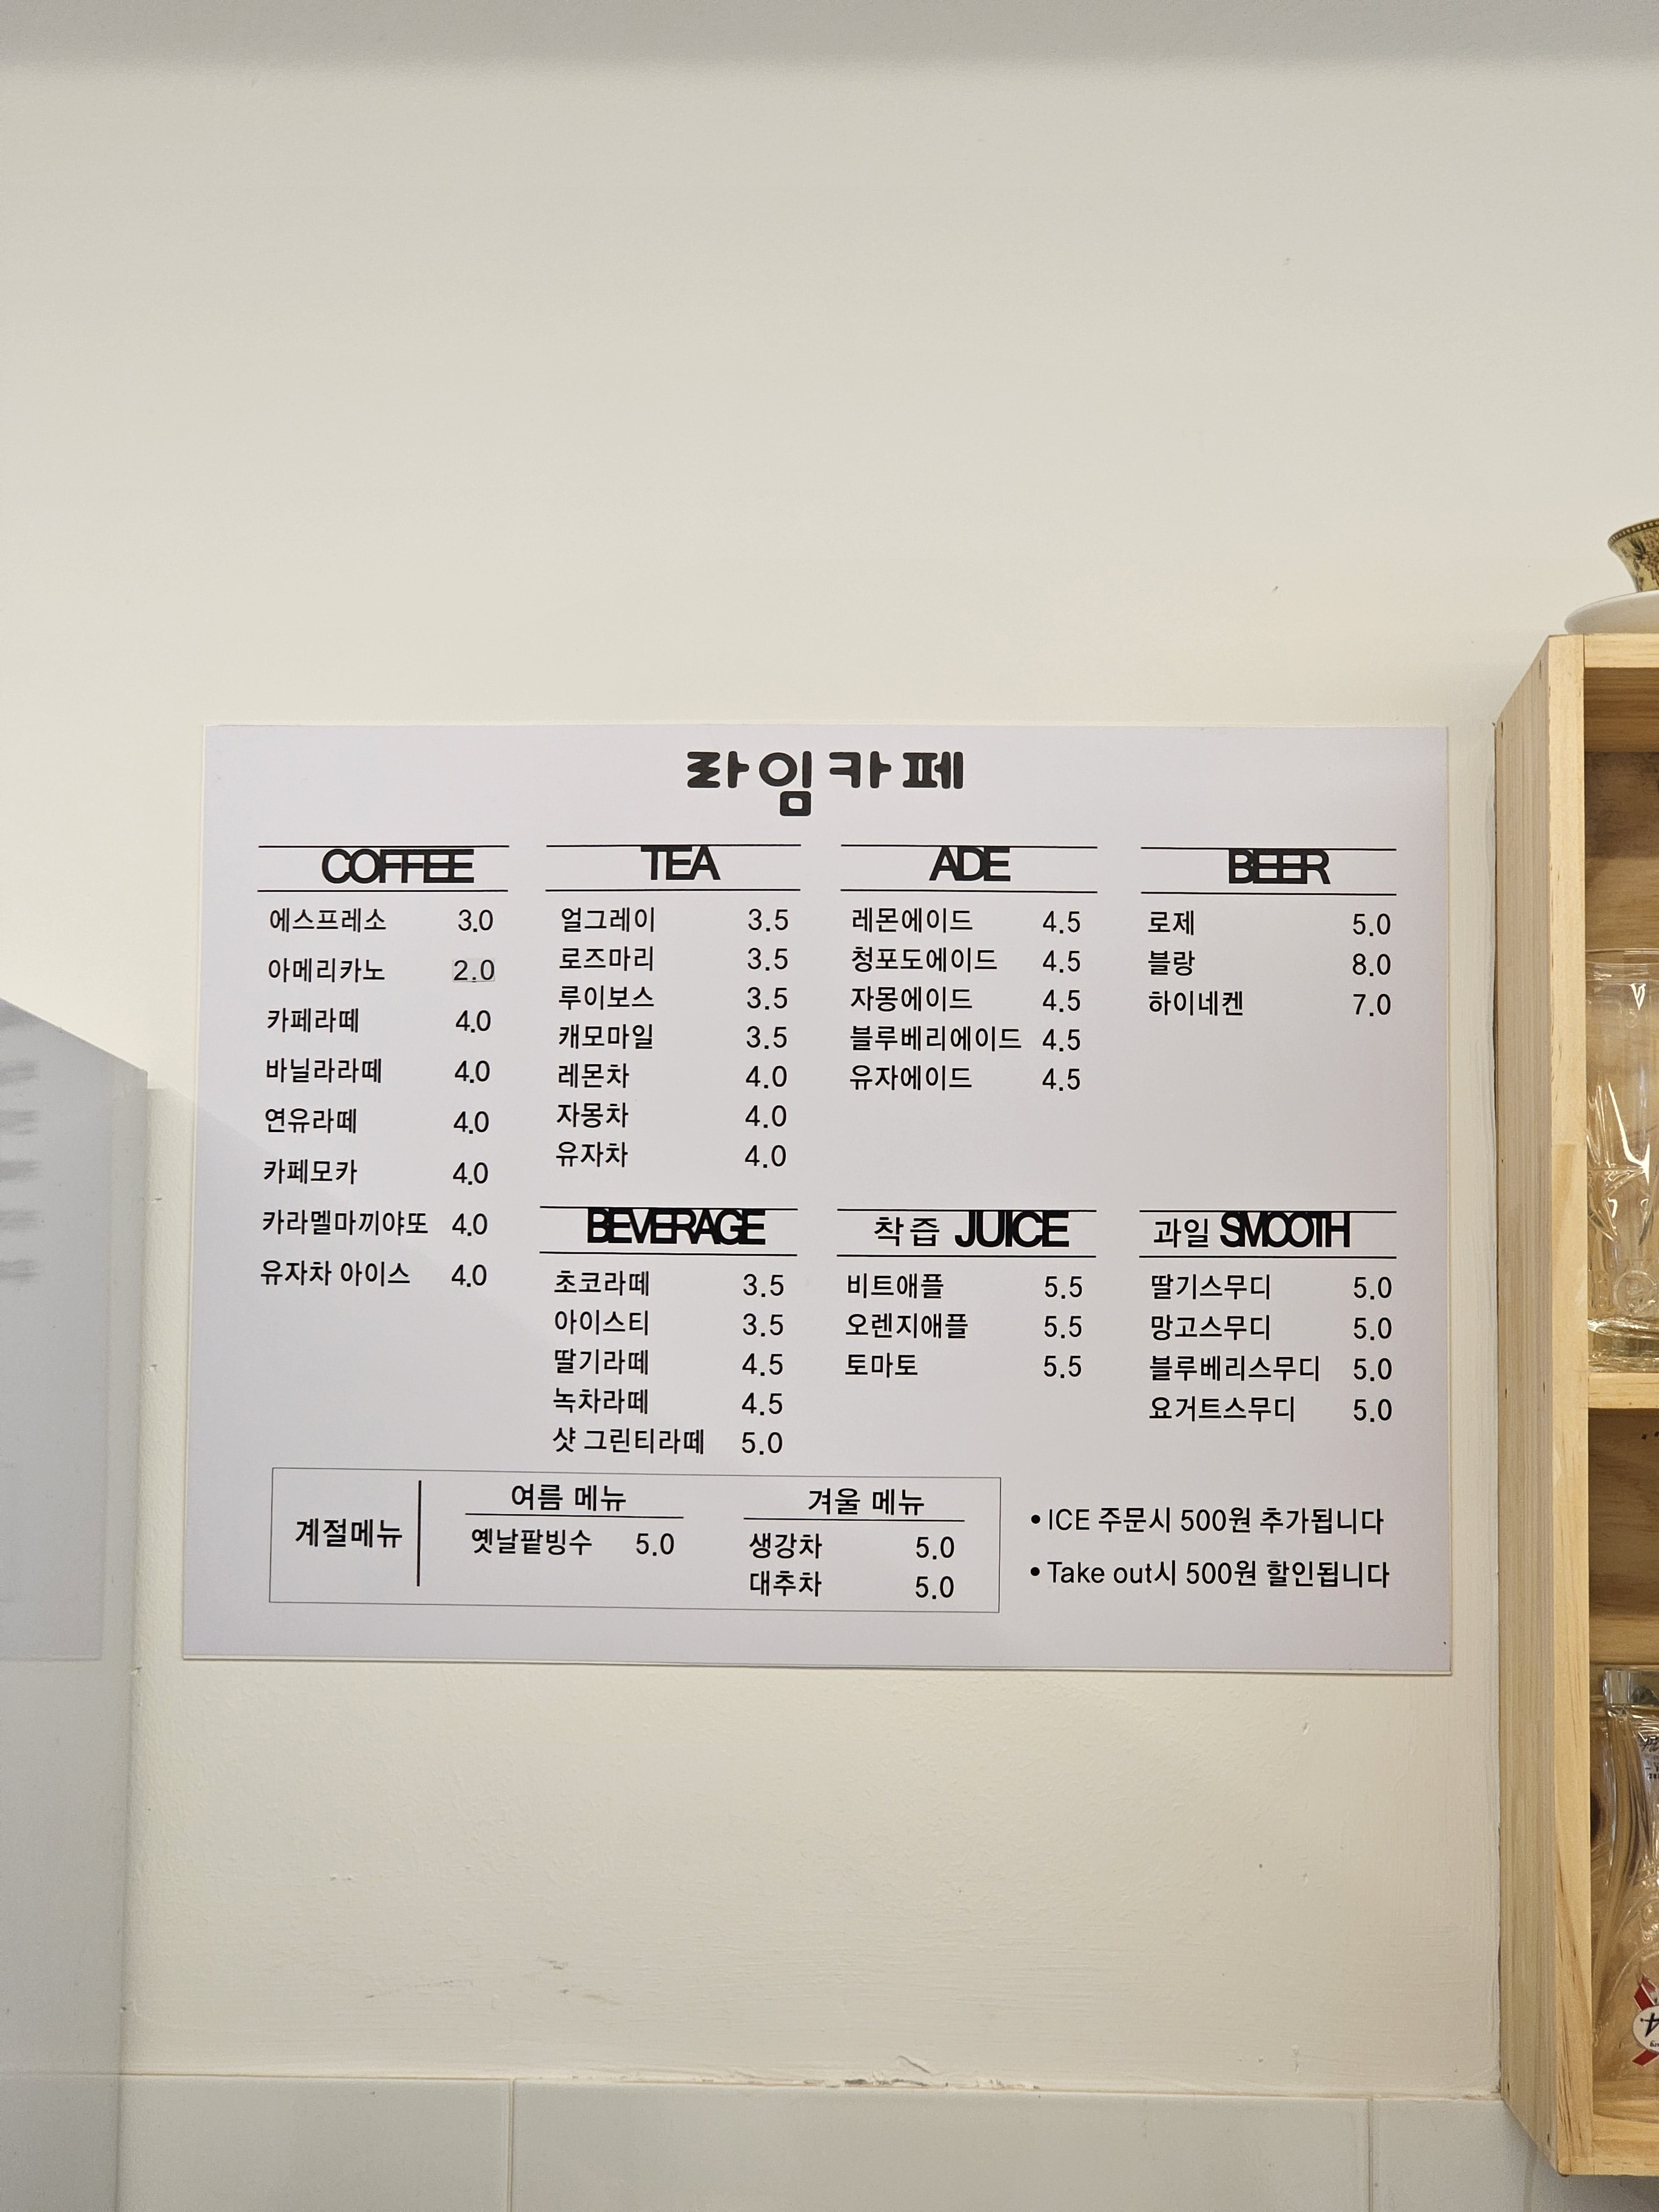 라임카페
COFFEE
에스프레소 3.0
아메리카노 2.0
카페라떼 4.0
바닐라라떼 4.0
연유라떼 4.0
카페모카 4.0
카라멜마끼야또 4.0
유자차 아이스 4.0
TEA
얼그레이 3.5
로즈마리 3.5
루이보스 3.5
캐모마일 3.5
레몬차 4.0
자몽차 4.0
유자차 4.0
ADE
레몬에이드 4.5
청포도에이드 4.5
자몽에이드 4.5
블루베리에이드 4.5
유자에이드 4.5
BEER
로제 5.0
블랑 8.0
하이네켄 7.0
BEVERAGE
초코라떼 3.5
아이스티 3.5
딸기라떼 4.5
녹차라떼 4.5
샷 그린티라떼 5.0
착즙 JUICE
비트애플 5.5
오렌지애플 5.5
토마토 5.5
과일 SMOOTH
딸기스무디 5.0
망고스무디 5.0
블루베리스무디 5.0
요거트스무디 5.0
계절메뉴
여름 메뉴
옛날팥빙수 5.0
겨울 메뉴
생강차 5.0
대추차 5.0
• ICE 주문시 500원 추가됩니다
• Take out시 500원 할인됩니다